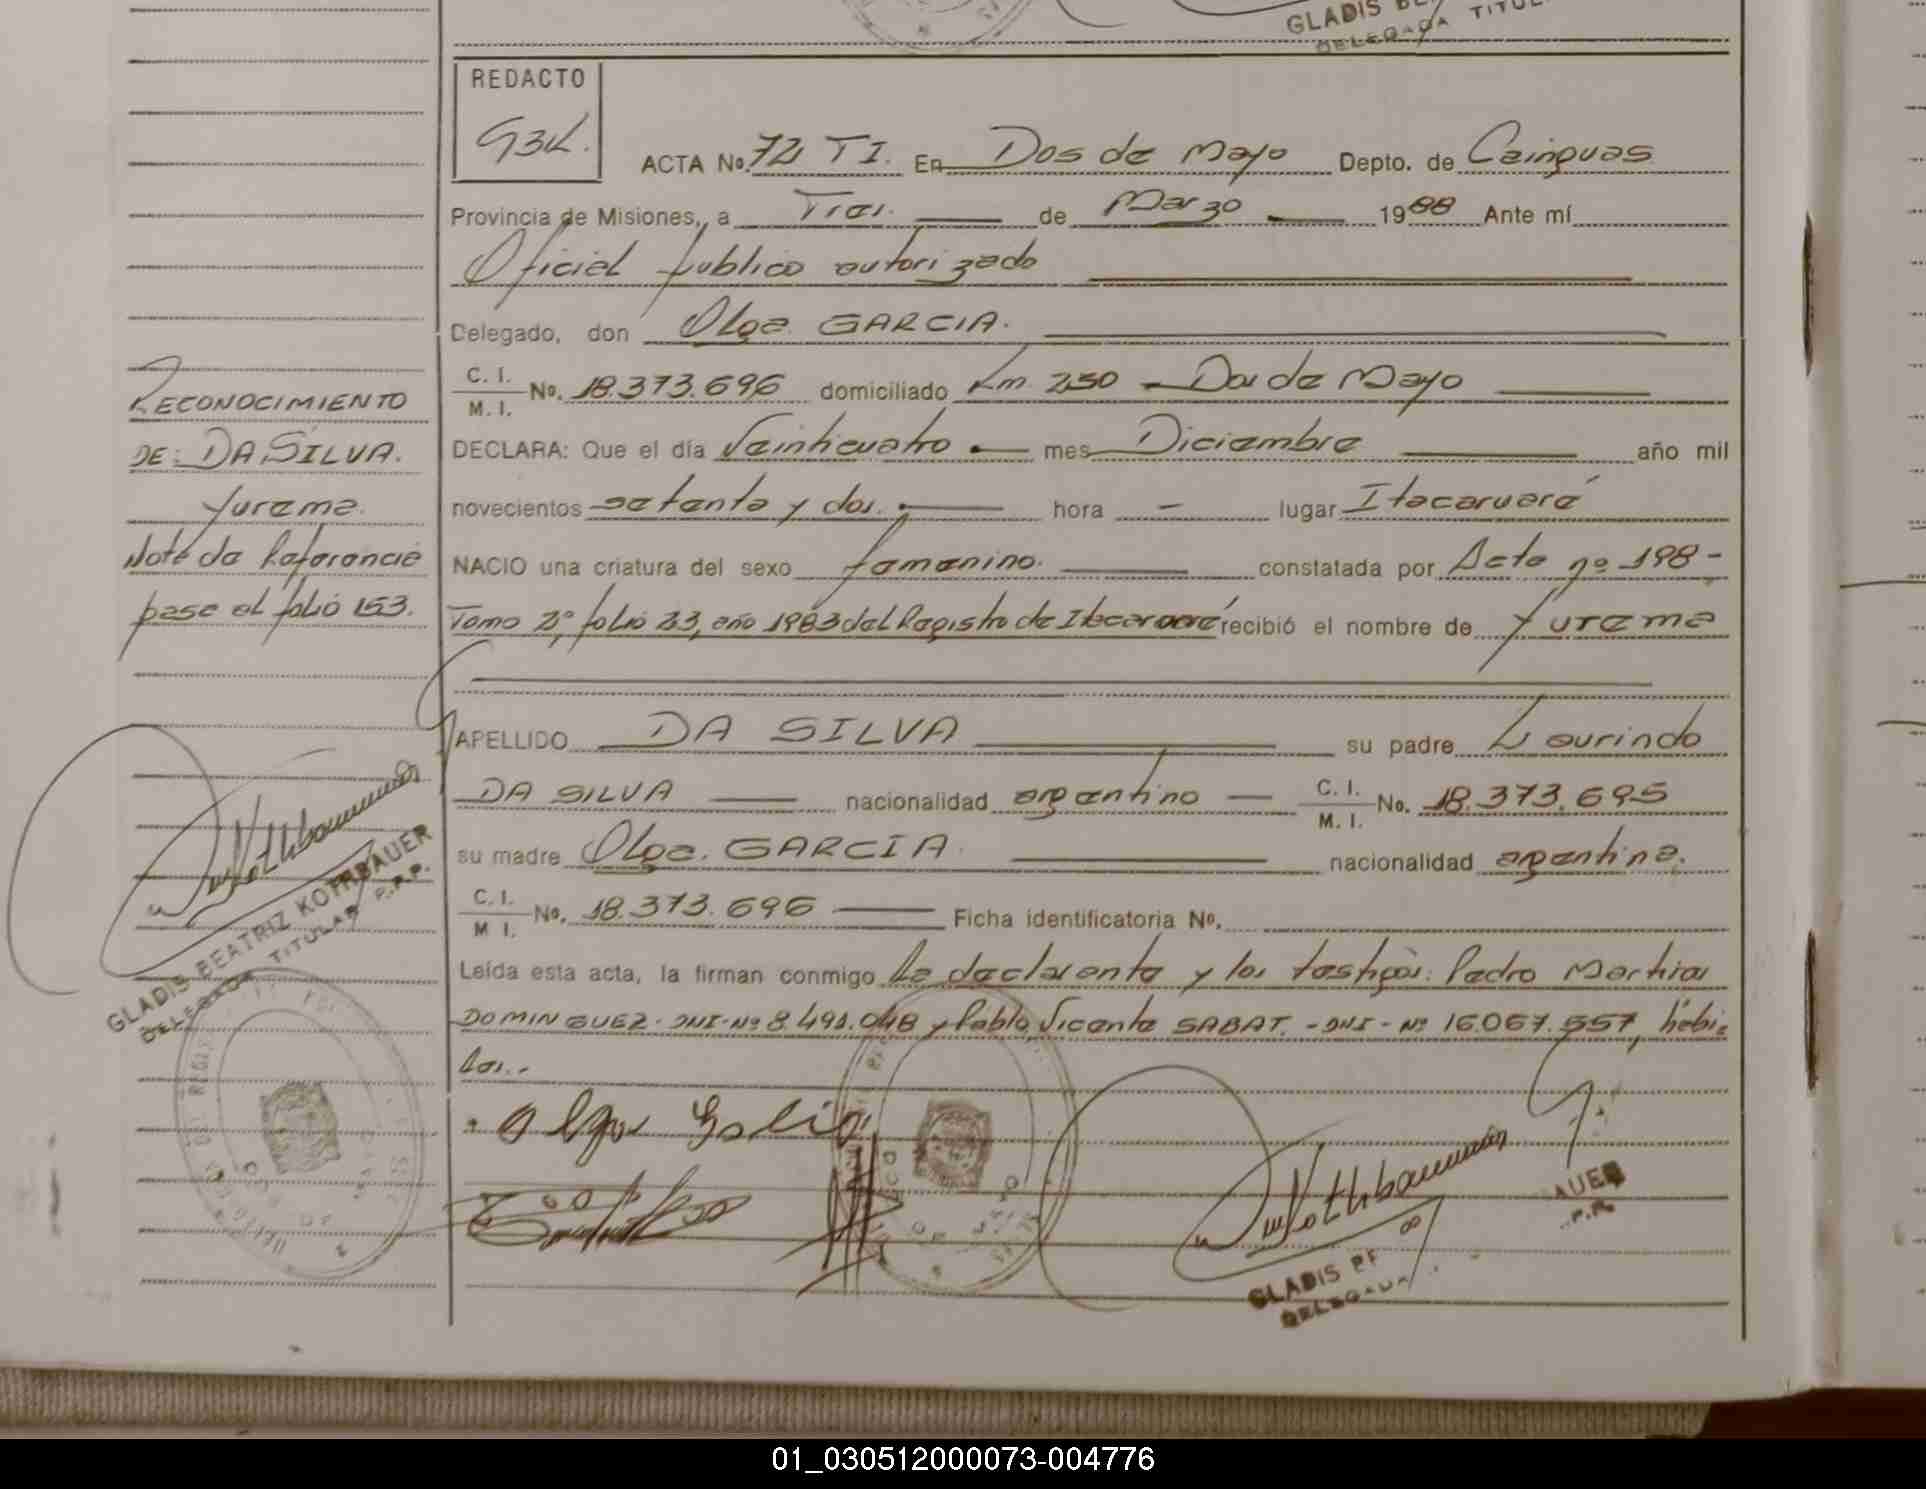 GLADIS
DELEGADA TITUL
REDACTO
G3K.
ACTA No. 72 T I. En Dos de Mayo Depto. de Cainguas
Provincia de Misiones, a Tres. de Marzo 1988 Ante mí
Oficial publico autorizado
Delegado, don Olga GARCIA.
C. I.
M. I. No. 18.373.696 domiciliado Km 250 - Dos de Mayo
DECLARA: Que el día Veinticuatro mes Diciembre año mil
novecientos setenta y dos. hora — lugar Itacaruaré
NACIO una criatura del sexo femenino. constatada por Acta nº 198 -
Tomo 2º, folio 23, año 1983 del Registro de Itacaruaré recibió el nombre de Yurema
APELLIDO DA SILVA su padre Laurindo
DA SILVA nacionalidad argentino C. I.
M. I. No. 18.373.695
su madre Olga. GARCIA. nacionalidad argentina.
C. I.
M I. No. 18.373.696 Ficha identificatoria No.
Leída esta acta, la firman conmigo la declarante y los testigos: Pedro Martin
DOMINGUEZ - DNI - Nº 8.491.048 y Pablo Vicente SABAT. - DNI - Nº 16.067.557, hábi=
les.-
RECONOCIMIENTO
DE: DA SILVA.
Yurema.
Nota de Referencia
pase al folio 153.
GLADIS BEATRIZ KOTHBAUER
DELEGADA TITULAR P.R.P.
Olga
GLADIS BE AUER
DELEGADA P.R.
01_030512000073-004776